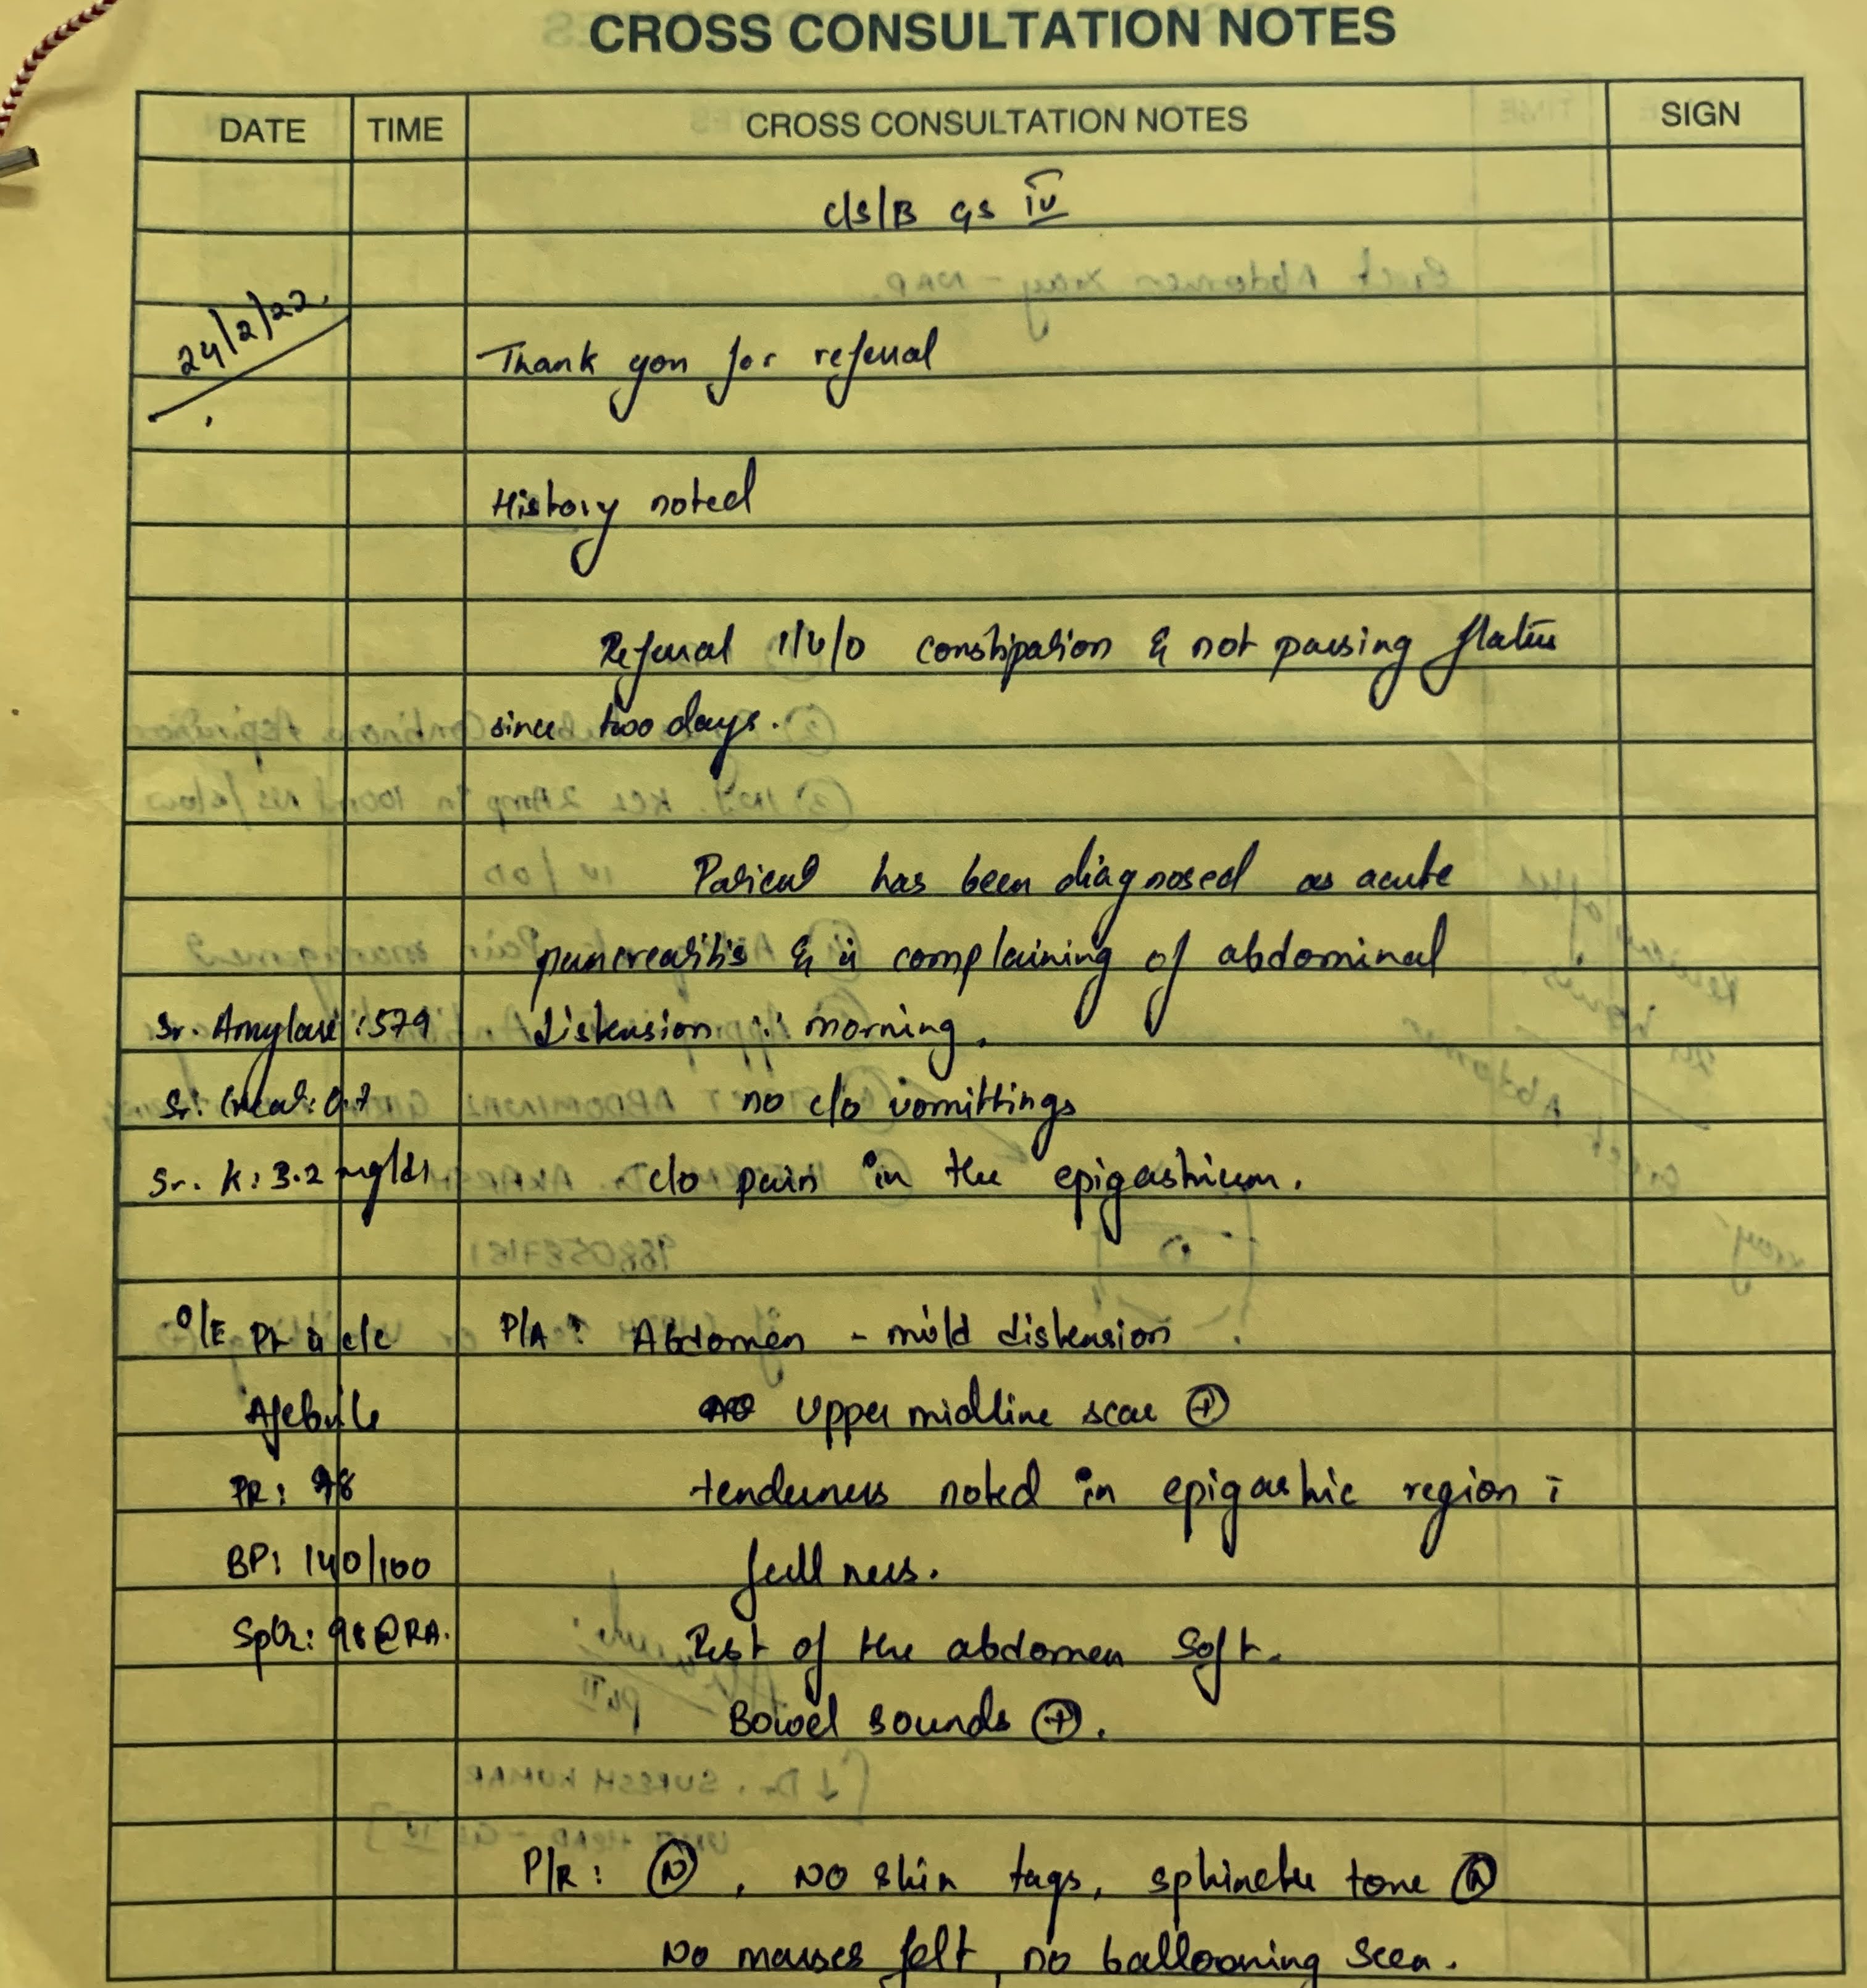 CROSS CONSULTATION NOTES
DATE TIME CROSS CONSULTATION NOTES SIGN
c/s/B GS IV
24/2/22
Thank you for referral
History noted
Referral i/v/o constipation & not passing flatus
since two days.
Patient has been diagnosed as acute
pancreatitis & is complaining of abdominal
Sr. Amylase : 579 distension morning.
Sr. Creat: 0.7 no c/o vomittings
Sr. K: 3.2 mg/dl c/o pain in the epigastrium.
O/E Pt is c/c P/A : Abdomen - mild distension
Afebrile Upper midline scar ⊕
PR: 98 tenderness noted in epigastric region
BP: 140/100 fullness.
SpO2: 98@RA. Rest of the abdomen soft.
Bowel sounds ⊕.
P/R: Ⓝ, NO skin tags, sphincter tone Ⓝ
No masses felt, no ballooning seen.